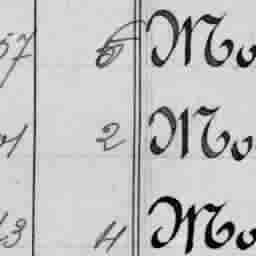 57 6 Mo
01 2 Mo
13 4 Mo